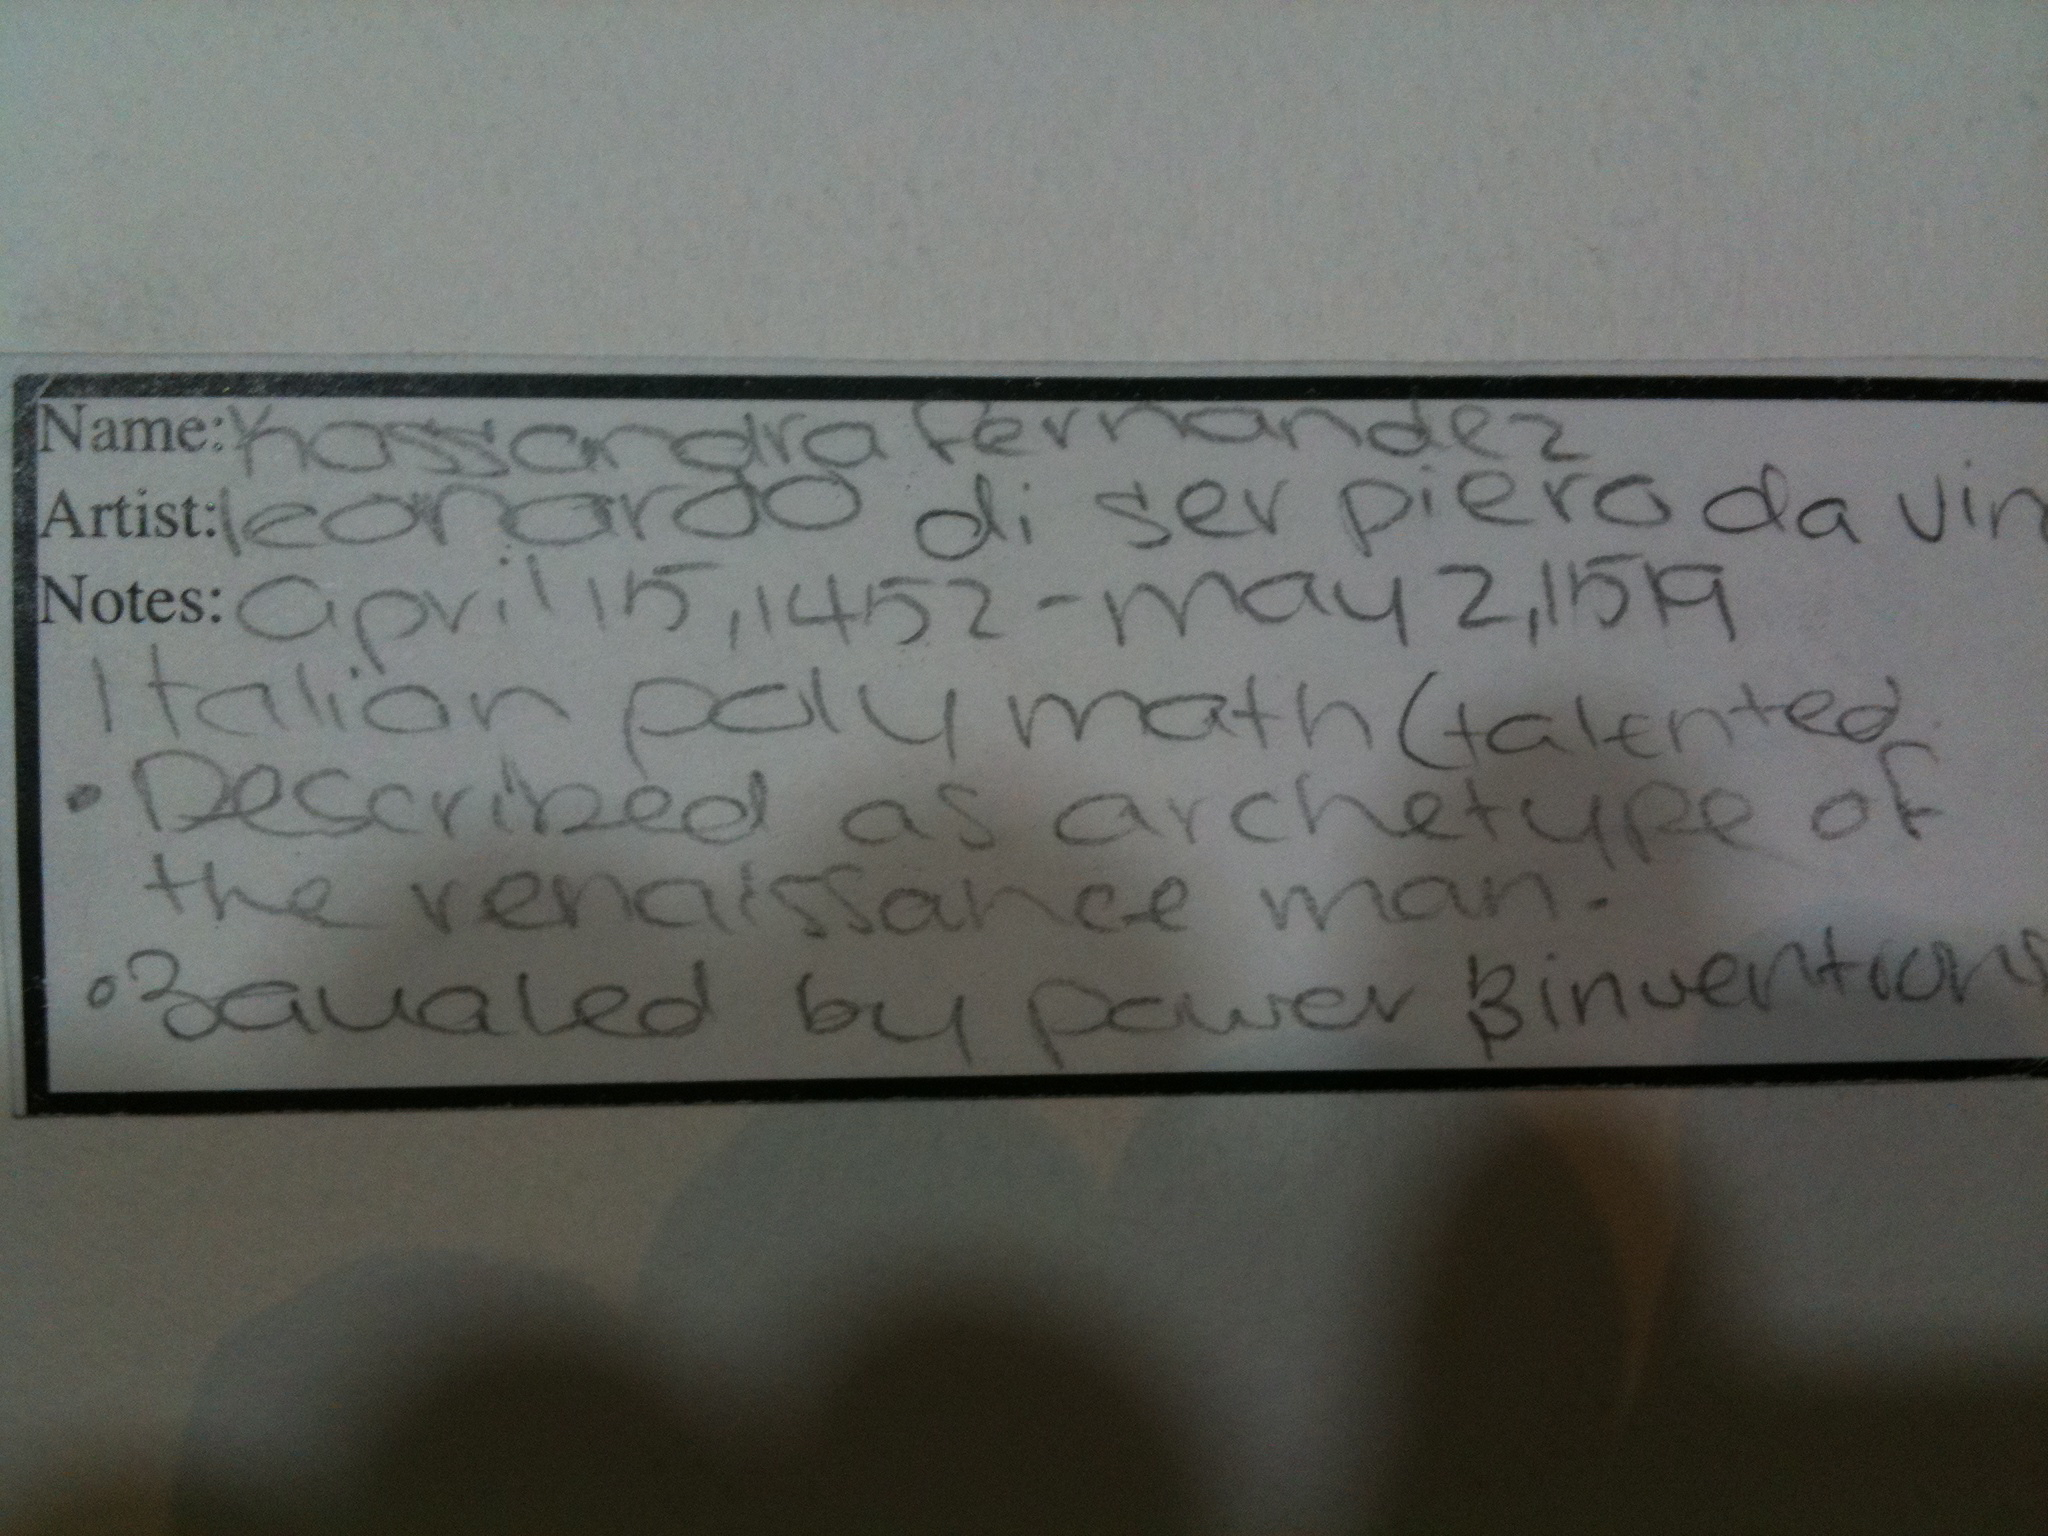 Name: Kassandra fernandez
Artist: leonardo di ser piero da vin
Notes: april 15, 1452 - may 2, 1519
Italian poly math (talented
• Described as archetype of
the renaissance man.
• by power inventions